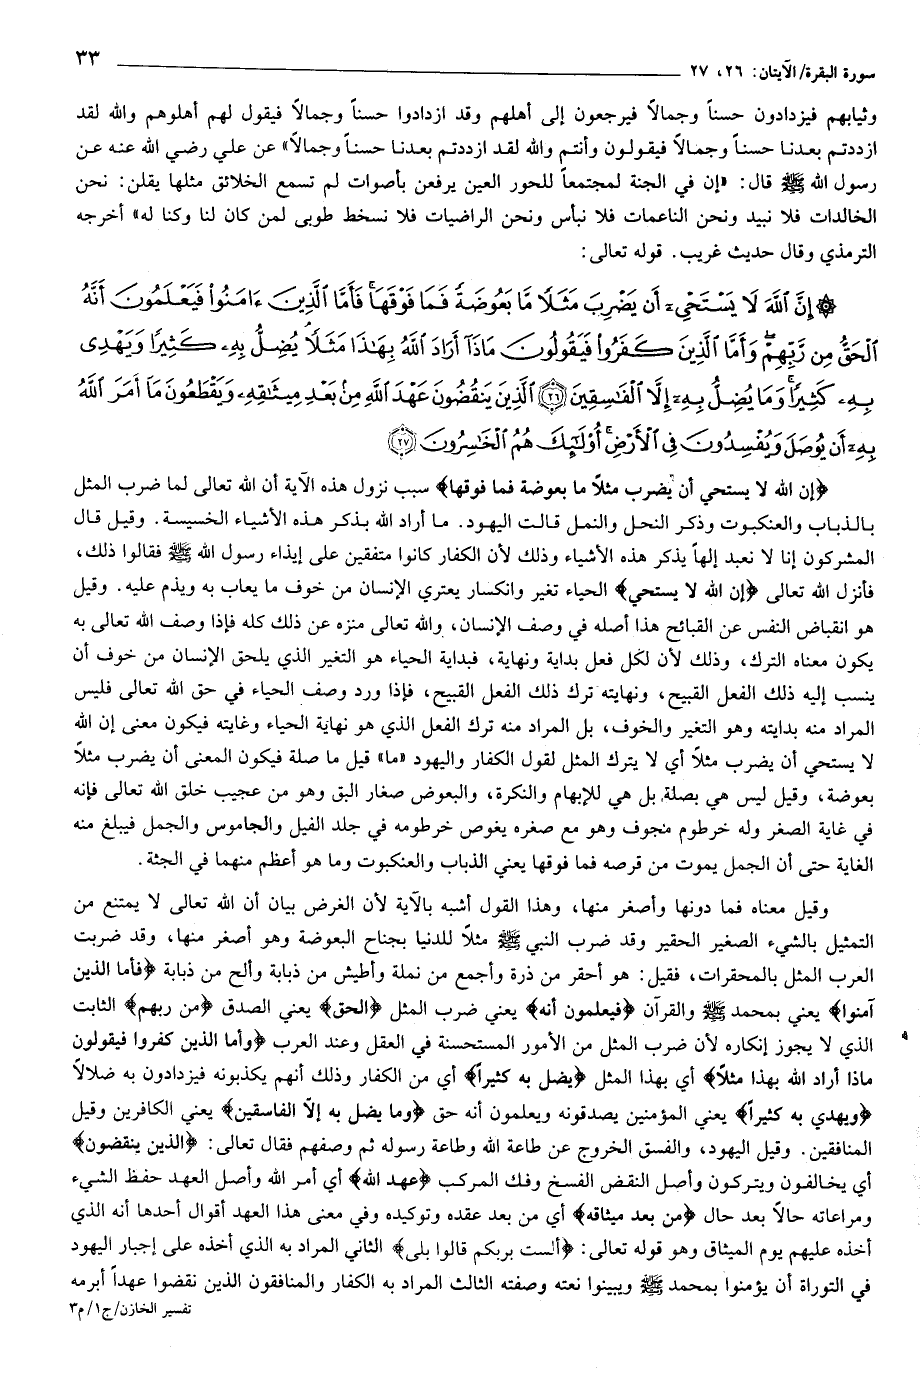 سورة البقرة/ الآيتان: ٢٦، ٢٧ ٣٣
وثيابهم فيزدادون حسناً وجمالاً فيرجعون إلى أهلهم وقد ازدادوا حسناً وجمالاً فيقول لهم أهلوهم والله لقد
ازددتم بعدنا حسناً وجمالاً فيقولون وأنتم والله لقد ازددتم بعدنا حسناً وجمالاً» عن علي رضي الله عنه عن
رسول الله ﷺ قال: «إن في الجنة لمجتمعاً للحور العين يرفعن بأصوات لم تسمع الخلائق مثلها يقلن: نحن
الخالدات فلا نبيد ونحن الناعمات فلا نبأس ونحن الراضيات فلا نسخط طوبى لمن كان لنا وكنا له» أخرجه
الترمذي وقال حديث غريب. قوله تعالى:
۞ إِنَّ ٱللَّهَ لَا يَسْتَحْىِۦٓ أَن يَضْرِبَ مَثَلًا مَّا بَعُوضَةً فَمَا فَوْقَهَا ۚ فَأَمَّا ٱلَّذِينَ ءَامَنُوا۟ فَيَعْلَمُونَ أَنَّهُ
ٱلْحَقُّ مِن رَّبِّهِمْ ۖ وَأَمَّا ٱلَّذِينَ كَفَرُوا۟ فَيَقُولُونَ مَاذَآ أَرَادَ ٱللَّهُ بِهَٰذَا مَثَلًا ۘ يُضِلُّ بِهِۦ كَثِيرًا وَيَهْدِى
بِهِۦ كَثِيرًا ۚ وَمَا يُضِلُّ بِهِۦٓ إِلَّا ٱلْفَٰسِقِينَ ﴿٢٦﴾ ٱلَّذِينَ يَنقُضُونَ عَهْدَ ٱللَّهِ مِنۢ بَعْدِ مِيثَٰقِهِۦ وَيَقْطَعُونَ مَآ أَمَرَ ٱللَّهُ
بِهِۦٓ أَن يُوصَلَ وَيُفْسِدُونَ فِى ٱلْأَرْضِ ۚ أُو۟لَٰٓئِكَ هُمُ ٱلْخَٰسِرُونَ ﴿٢٧﴾
﴿إن الله لا يستحي أن يضرب مثلاً ما بعوضة فما فوقها﴾ سبب نزول هذه الآية أن الله تعالى لما ضرب المثل
بالذباب والعنكبوت وذكر النحل والنمل قالت اليهود. ما أراد الله بذكر هذه الأشياء الخسيسة. وقيل قال
المشركون إنا لا نعبد إلهاً يذكر هذه الأشياء وذلك لأن الكفار كانوا متفقين على إيذاء رسول الله ﷺ فقالوا ذلك،
فأنزل الله تعالى ﴿إن الله لا يستحي﴾ الحياء تغير وانكسار يعتري الإنسان من خوف ما يعاب به ويذم عليه. وقيل
هو انقباض النفس عن القبائح هذا أصله في وصف الإنسان، والله تعالى منزه عن ذلك كله فإذا وصف الله تعالى به
يكون معناه الترك، وذلك لأن لكل فعل بداية ونهاية، فبداية الحياء هو التغير الذي يلحق الإنسان من خوف أن
ينسب إليه ذلك الفعل القبيح، ونهايته ترك ذلك الفعل القبيح، فإذا ورد وصف الحياء في حق الله تعالى فليس
المراد منه بدايته وهو التغير والخوف، بل المراد منه ترك الفعل الذي هو نهاية الحياء وغايته فيكون معنى إن الله
لا يستحي أن يضرب مثلاً أي لا يترك المثل لقول الكفار واليهود «ما» قيل ما صلة فيكون المعنى أن يضرب مثلاً
بعوضة، وقيل ليس هي بصلة بل هي للإبهام والنكرة، والبعوض صغار البق وهو من عجيب خلق الله تعالى فإنه
في غاية الصغر وله خرطوم مجوف وهو مع صغره يغوص خرطومه في جلد الفيل والجاموس والجمل فيبلغ منه
الغاية حتى أن الجمل يموت من قرصه فما فوقها يعني الذباب والعنكبوت وما هو أعظم منهما في الجثة.
وقيل معناه فما دونها وأصغر منها، وهذا القول أشبه بالآية لأن الغرض بيان أن الله تعالى لا يمتنع من
التمثيل بالشيء الصغير الحقير وقد ضرب النبي ﷺ مثلاً للدنيا بجناح البعوضة وهو أصغر منها، وقد ضربت
العرب المثل بالمحقرات، فقيل: هو أحقر من ذرة وأجمع من نملة وأطيش من ذبابة وألح من ذبابة ﴿فأما الذين
آمنوا﴾ يعني بمحمد ﷺ والقرآن ﴿فيعلمون أنه﴾ يعني ضرب المثل ﴿الحق﴾ يعني الصدق ﴿من ربهم﴾ الثابت
الذي لا يجوز إنكاره لأن ضرب المثل من الأمور المستحسنة في العقل وعند العرب ﴿وأما الذين كفروا فيقولون
ماذا أراد الله بهذا مثلاً﴾ أي بهذا المثل ﴿يضل به كثيراً﴾ أي من الكفار وذلك أنهم يكذبونه فيزدادون به ضلالاً
﴿ويهدي به كثيراً﴾ يعني المؤمنين يصدقونه ويعلمون أنه حق ﴿وما يضل به إلاّ الفاسقين﴾ يعني الكافرين وقيل
المنافقين. وقيل اليهود، والفسق الخروج عن طاعة الله وطاعة رسوله ثم وصفهم فقال تعالى: ﴿الذين ينقضون﴾
أي يخالفون ويتركون وأصل النقض الفسخ وفك المركب ﴿عهد الله﴾ أي أمر الله وأصل العهد حفظ الشيء
ومراعاته حالاً بعد حال ﴿من بعد ميثاقه﴾ أي من بعد عقده وتوكيده وفي معنى هذا العهد أقوال أحدها أنه الذي
أخذه عليهم يوم الميثاق وهو قوله تعالى: ﴿ألست بربكم قالوا بلى﴾ الثاني المراد به الذي أخذه على إجبار اليهود
في التوراة أن يؤمنوا بمحمد ﷺ ويبينوا نعته وصفته الثالث المراد به الكفار والمنافقون الذين نقضوا عهداً أبرمه
تفسير الخازن/ج١/م٣